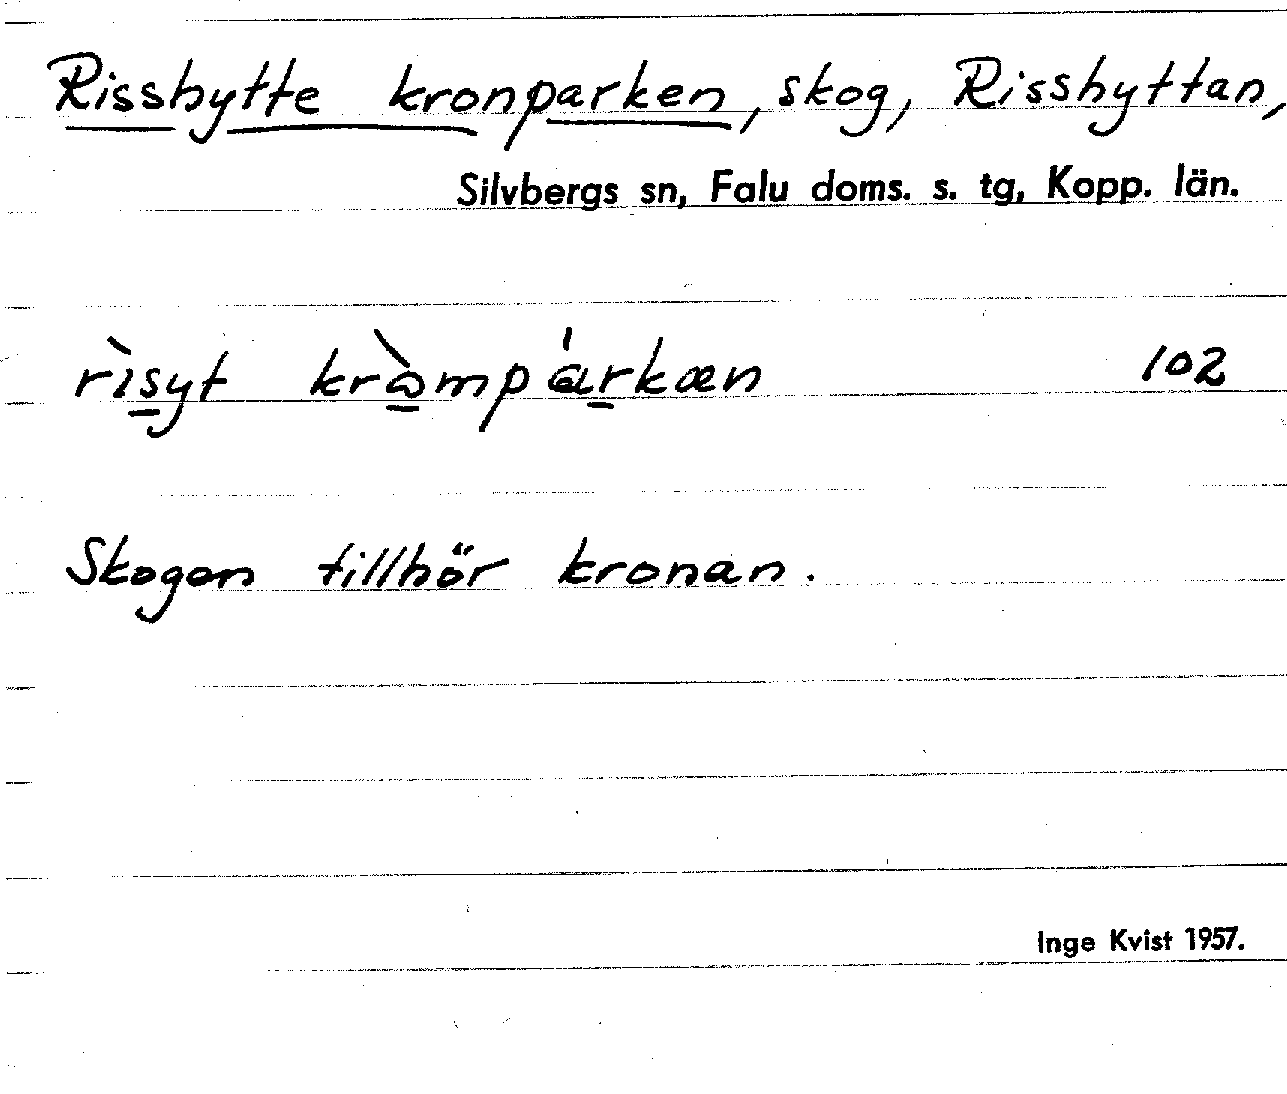 Risshytte kronparken, skog, Risshyttan,
Silvbergs sn, Falu doms. s. tg, Kopp. län.
rìs̲yt krò̲mpá̲rkæn 102
Skogen tillhör kronan.
Inge Kvist 1957.